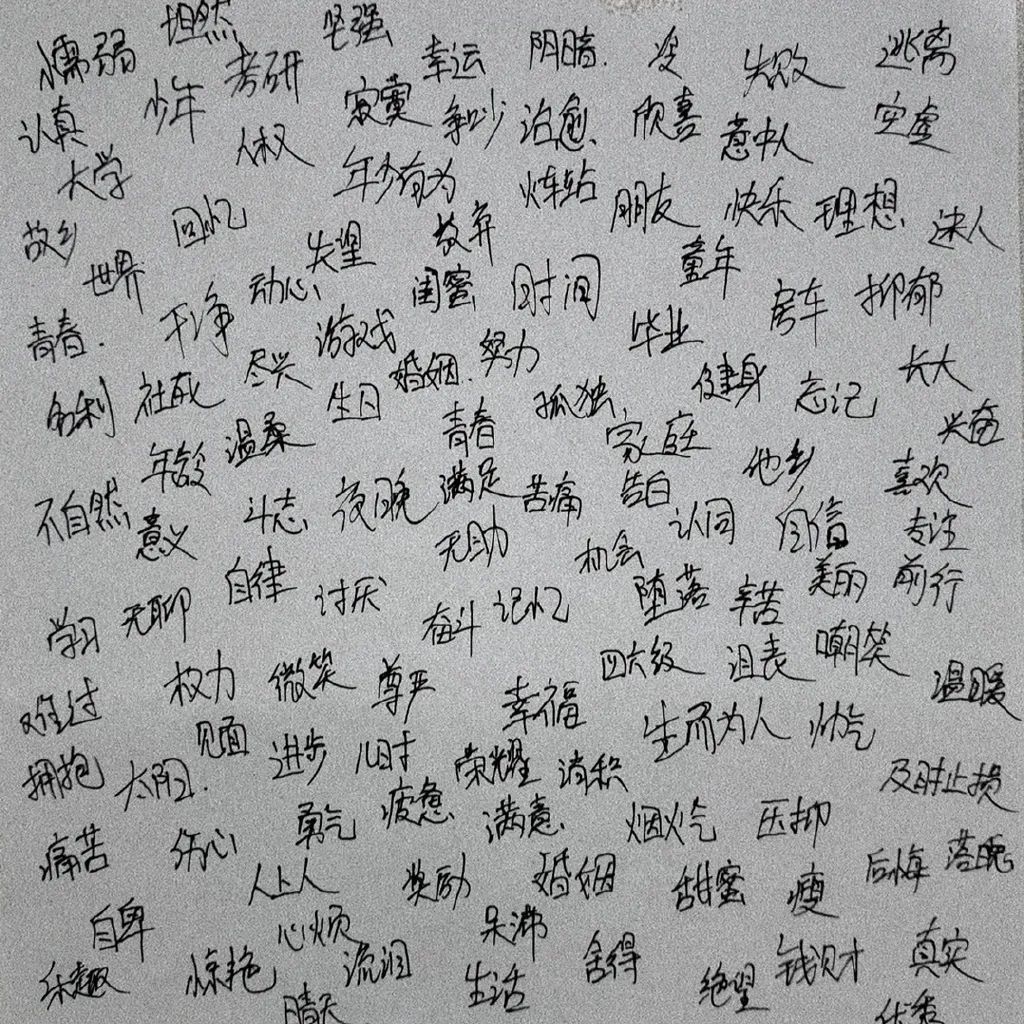 懦弱 坦然 坚强 幸运 阴暗 失败 逃离
认真 少年 考研 寂寞 争吵 治愈 欣喜 意中人 空虚
大学 人权 年少有为 炸站 朋友 快乐 理想 迷人
故乡 回忆 失望 放弃 童年
世界 动心 闺蜜 时间 房车 抑郁
青春 干净 游戏 努力 毕业
名利 社死 尽兴 生日 婚姻 孤独 健身 忘记 长大
年龄 温柔 青春 家庭 他乡 兴奋
不自然 意义 斗志 夜晚 满足 苦痛 告白 认同 自信 喜欢 专注
自律 无助 机会 美丽 前行
学习 无聊 讨厌 奋斗 记忆 堕落 辛苦
难过 权力 微笑 尊严 幸福 四六级 泪表 嘲笑 温暖
见面 生而为人 帅气
拥抱 太阳 进步 儿时 荣耀 消积 及时止损
痛苦 伤心 勇气 疲惫 满意 烟火气 压抑
人上人 奖励 婚姻 甜蜜 瘦 后悔 落魄
自卑 心烦 呆沸
乐趣 惊艳 流泪 生活 舍得 绝望 钱财 真实
晴天 优秀